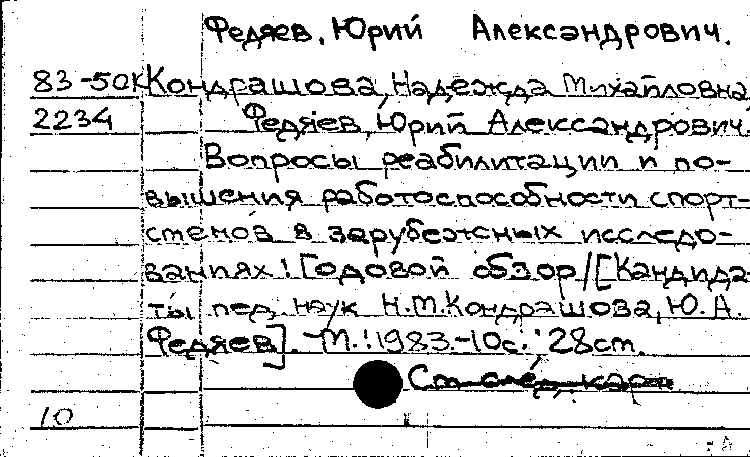 Федяев, Юрий Александрович.
83-50К Кондрашова, Надежда Михайловна,
2234 Федяев, Юрий Александрович.
Вопросы реабилитации и по-
вышения работоспособности спорт-
сменов в зарубежных исследо-
ваниях: [Годовой обзор/[Кандида-
ты пед. наук Н.М.Кондрашова, Ю.А.
Федяев]. -М.:1983.-10с.:28см.
См след. кар
10